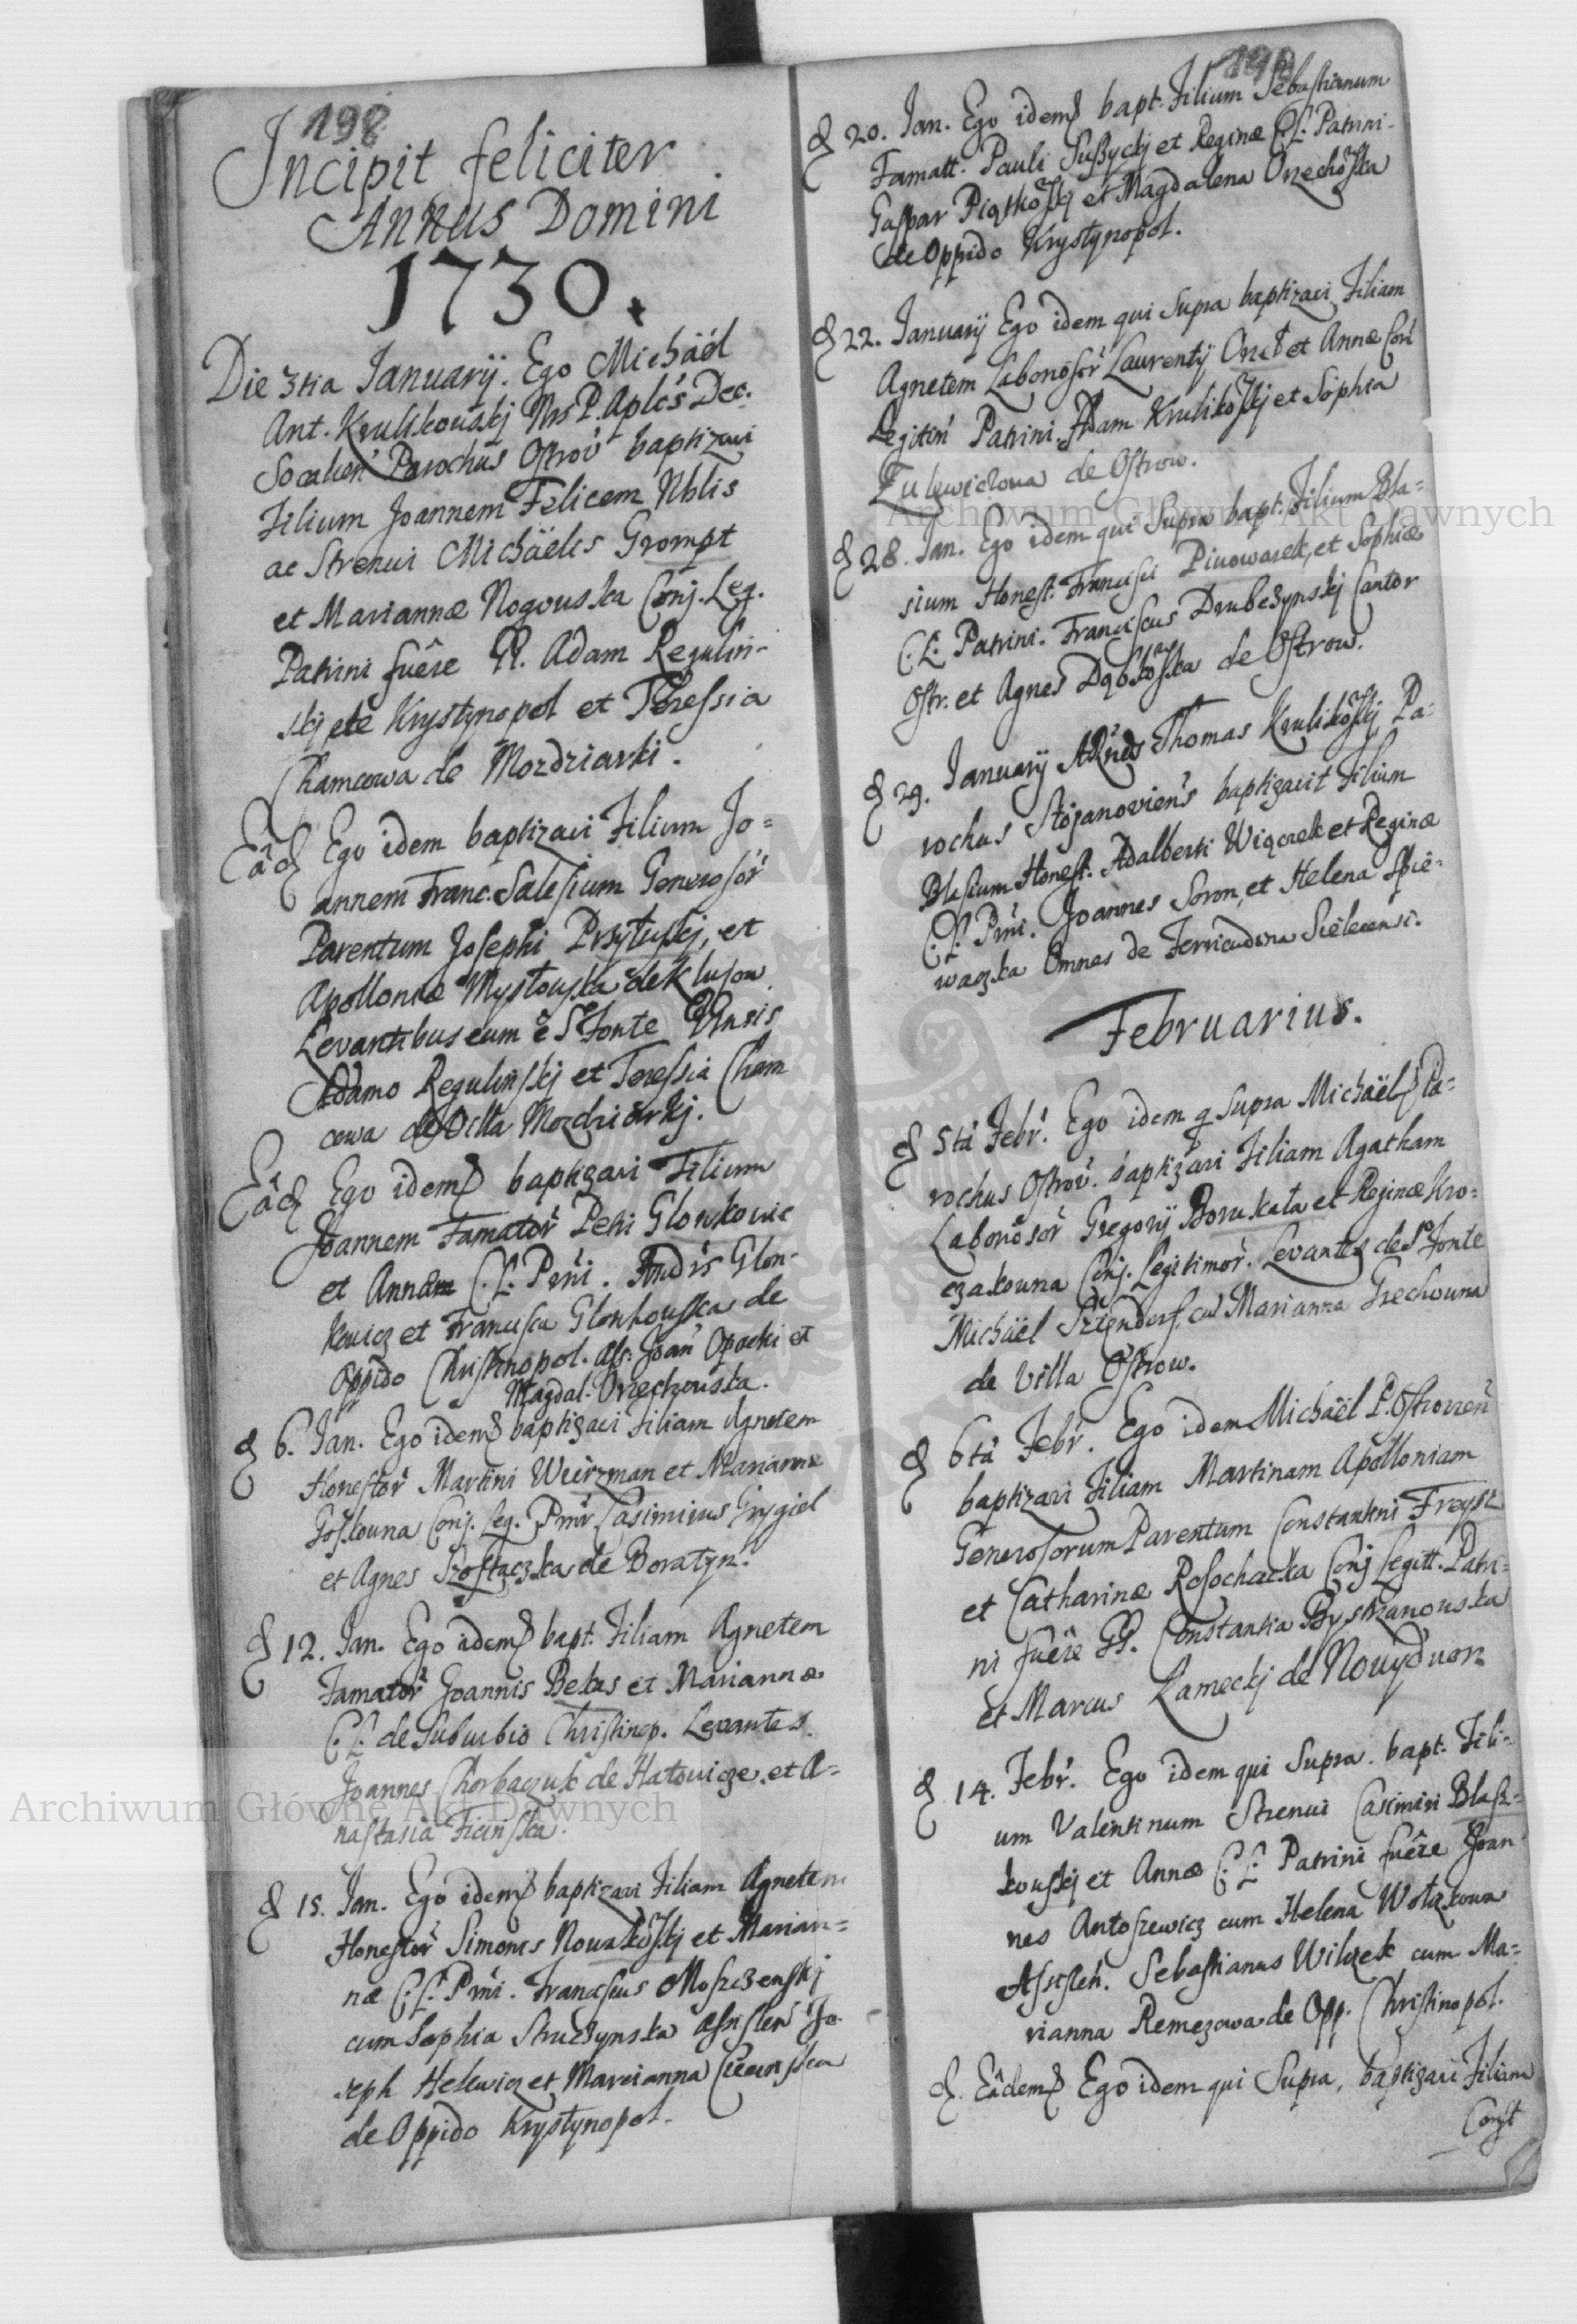 198
Incipit feliciter
Annus Domini
1730.
Die 3tia Januarij. Ego Michäel
Ant. Krulikouskj Nrs P. Aplcs Dec.
Socalien Parochus Ostrov baptizavi
Filium Joannem Felicem Nblis
ac Strenui Michäelis Grompt
et Mariannæ Rogouska Conj. Leg.
Patrini fuêre Adam Regulin-
skj de Krystynopol et Theressia
Chamcowa de Mozdziarki.
Eâd Ego idem baptizavi Filium Jo=
annem Franc. Salesium Generosor
Parentum Josephi Przyłuskj, et
Apolloniæ Mysłouska de Klusow
Levantibus eum è S Fonte
Adamo Regulinskj et Teressia Cham
cowa de Villa Mozdziarkj.
Eâd Ego idem baptizavi Filium
Joannem Famator Petri Glonkowic
et Annam C. L. Prni. Andrs Glon-
kewicz et Francisca Glonkouska de
Oppido Christinopol. Ass. Joan Opacki et
Magdal. Orzechouska.
6. Jan. Ego idem baptizavi Filiam Agnetem
Honestor Martini Weirzman et Mariannæ
Conj. Leg. Casimirus Grygiel
et Agnes Szostaczka de Boratyn.
12. Jan. Ego idem bapt. Filiam Agnetem
Famator Joannis Belas et Mariannæ
C. L. de Suburbio Christinop. Levantes
Joannes Chorbaczuk de Hatowicze et A=
nastasia Ficinska.
15. Jan. Ego idem baptizavi Filiam Agnetem
Honestor Simonis Nowakoskj et Marian=
næ C. L. Prni. Franciscus Moszczenskj
cum Sophia Struczynska Assisten Jo-
seph Helewicz et Marianna
de Oppido Krystynopol.
20. Jan. Ego idem bapt. Filium Sebastianum
Famatt. Pauli et Reginæ C. L. Patrini-
Gaspar Piątkoskj et Magdalena Orzechoska
de Oppido Krystynopol.
22. Januarij Ego idem qui Supra baptizavi Filiam
Agnetem Laborosor Laurentij et Annæ Con
Legitim Patrini. Adam Krulikoskj et Sophia
de Ostrow.
28. Jan. Ego idem qui Supra bapt. Filium Bla=
sium Honest. Francisci Piwowarek, et Sophiæ
C. L. Patrini. Franciscus Drubczynskj Cantor
Ostr. et Agnes Dąbkoska de Ostrow.
29. Januarij ARnds Thomas Krulikoskj Pa=
rochus Stojanoviens baptizavit Filium
Blasium Honest. Adalberti Wiącek et Reginæ
C. L. Prni. Joannes Soron, et Helena Spie-
waczka Omnes de Sielecensi.
Februarius.
5ta Febr. Ego idem q Supra Michäel Pa=
rochus Ostrov. baptizavi Filiam Agatham
Laborosor Gregorij Borukała et Reginæ Kro=
czakouna Conj. Legitimor. Levantes de S Fonte
Michäel Marianna Grechouna
de Villa Ostrow.
6ta Febr. Ego idem Michäel P. Ostrovien
baptizavi Filiam Martinam Apolloniam
Generosorum Parentum Constantini Freyst
et Catharinæ Rosochacka Conj Legitt. Patri=
ni fuêre GG. Constantia Bystrzanouska
et Marcus Łameckj de Nouydwor
14. Febr. Ego idem qui Supra. bapt. Fili-
um Valentinum Strenui Casimiri Blasz-
kouskj et Annæ C. L. Patrini fuêre Joan
nes Antoszewicz cum Helena Wołąkowa
Assisten. Sebastianus Wilczek cum Ma=
rianna Remezowa de Opp. Christinopol.
Eâdem Ego idem qui Supra, baptizavi Filiam
Archiwum Główne Akt Dawnych
Archiwum Główne Akt Dawnych